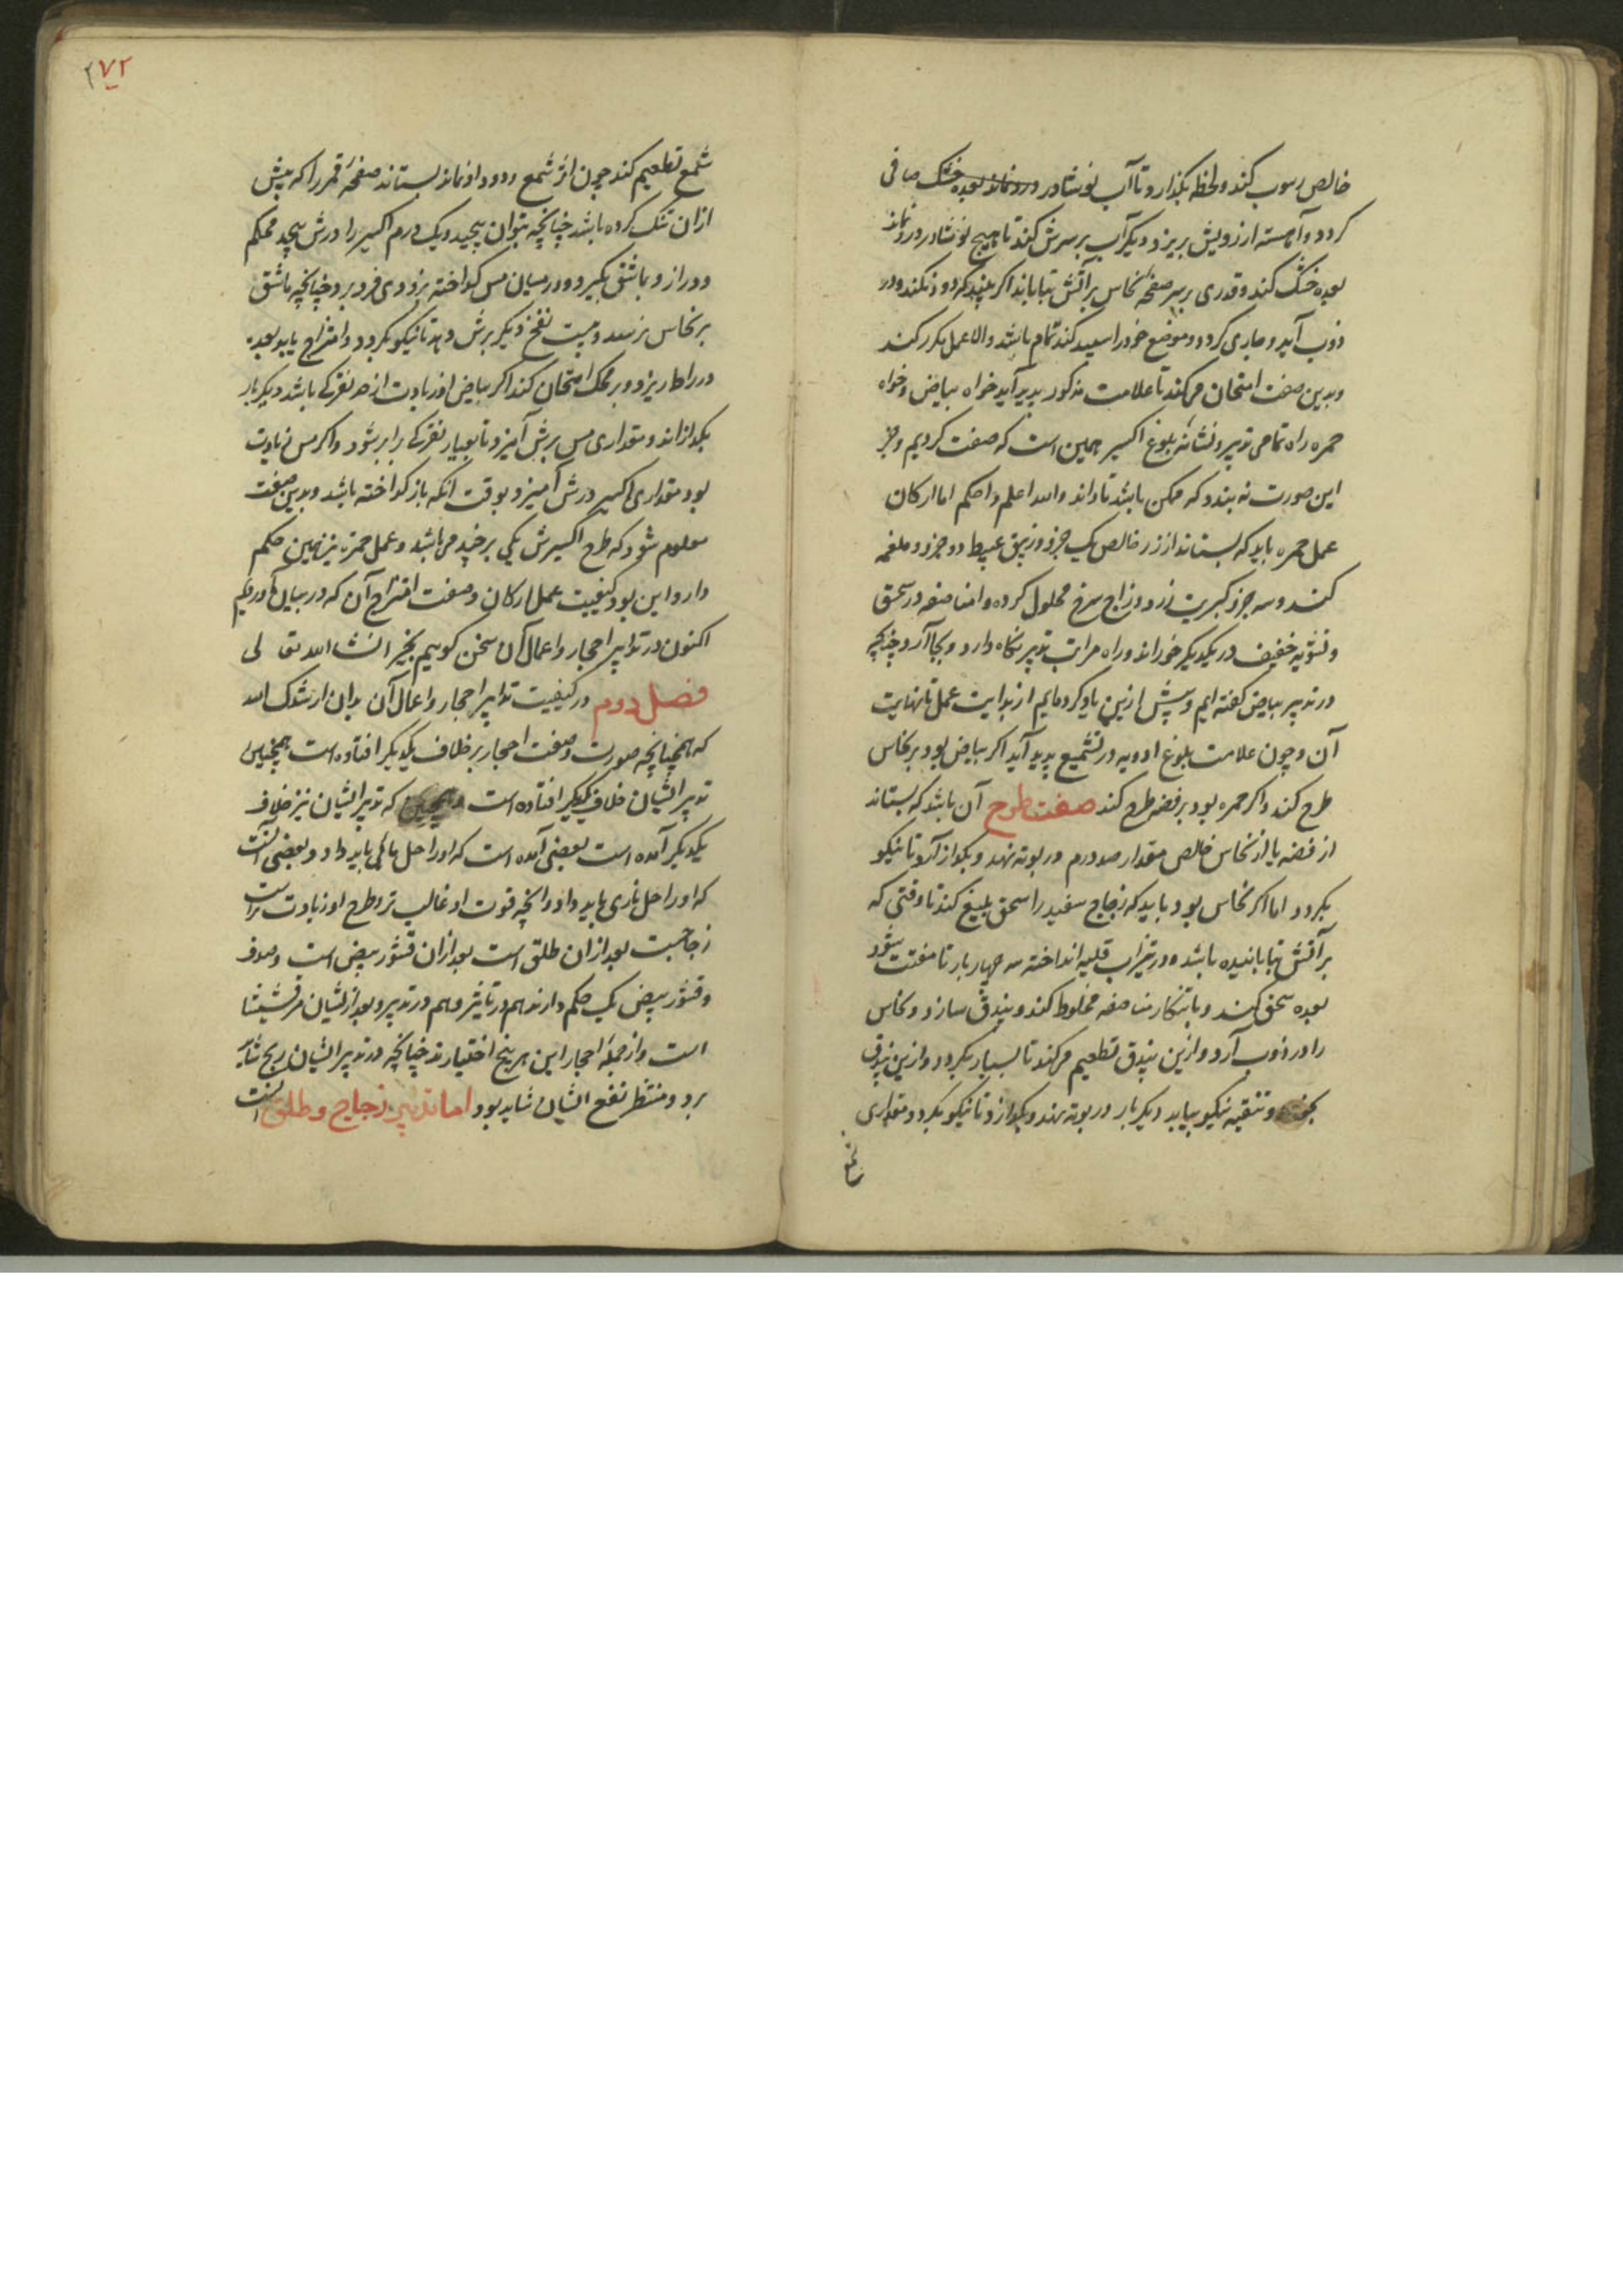 خالص رسوب کند و لحظه بگذارد تا آب نوشادر درو نماند بعده خشک صافی
گردد و آهسته از رویش بریزد و دیگر آب بر سرش کند تا هیچ نوشادر درو نماند
بعده خشک کند و قدری بر سر صفحه نحاس بر آتش بتاباند اگر ببیند که دود نکند و در
ذوب آید و جاری گردد و موضع خود را سپید کند تمام باشد والا عمل مکرر کند
و بدین صفت امتحان میکند تا علامت مذکور پدید آید خواه بیاض و خواه
حمره راه تمامی تدبیر و نشانه بلوغ اکسیر همین است که صفت کردیم و جز
این صورت نه بندد که ممکن باشد تا داند والله اعلم واحکم اما ارکان
عمل حمره باید که بستاند از زر خالص یک جزو و زیبق عبیط دو جزو و ملغمه
کند و سه جزو کبریت زرد و زاج سرخ محلول کرده و انضاصفه در سحق
و تشویه خفیف در یکدیگر خوراند و راه مراتب تدبیر نگاه دارد و بجا آرد چنانچه
در تدبیر بیاض گفته ایم و پیش ازین یاد کرده ایم از بدایت عمل تا نهایت
آن و چون علامت بلوغ ادویه در تشمیع پدید آید اگر بیاض بود بر نحاس
طرح کند و اگر حمره بود بر فضه طرح کند صفت طرح آن باشد که بستاند
از فضه یا از نحاس خالص مقدار صد درم در بوته نهد و بگداز آرد تا نیکو
بگردد اما اگر نحاس بود باید که زجاج سفید را سحق بلیغ کند تا وقتی که
بر آتش بتابانیده باشد و در تیزاب قلیه انداخته سه چهار بار تا مفتت بشود
بعده سحق کند و با تنکار مناصفه مخلوط کند و بندق سازد و نحاس
را در ذوب آرد و ازین بندق تطعیم میکند تا بسیار بگردد و ازین بندق
بخورد و تنقیه نیکو بیابد دیگر بار در بوته نهد و بگدازد تا نیکو بگردد و مقداری
شمع
۲۷۲
شمع تطعیم کند چون اثر شمع و دود او نماند بستاند صفحه قمر را که پیش
ازان تنک کرده باشد چنانچه بتوان پیچید و یک درم اکسیر را درش پیچد محکم
و دراز و باشق بگیرد و در میان مس گداخته بزودی فرو برد چنانچه ماشق
بر نحاس نرسد و بیست نفخ دیگر برش دهد تا نیکو بگردد و امتزاج یابد بعده
در راط ریزد و بر محک امتحان کند اگر بیاض او زیادت از حد نقرگی باشد دیگر بار
بگدازاند و مقداری مس برش آمیزد تا بعیار نقرگی برابر شود و اگر مس زیادت
بود مقداری اکسیر درش آمیزد بوقت آنکه باز گداخته باشد و بدین صفت
معلوم شود که طرح اکسیرش یکی بر چند میباشد و عمل حمره نیز همین حکم
دارد این بود کیفیت عمل ارکان و صفت امتزاج آن که در بیان آوردیم
اکنون در تدابیر احجار و اعمال آن سخن گوییم بخیر انشاالله تعالی
فصل دوم در کیفیت تدابیر احجار و اعمال آن بدان ارشدک الله
که همچنانچه صورت و صفت احجار بر خلاف یکدیگر افتاده است همچنین
تدبیر ایشان خلاف یکدیگر افتاده است و همچنین که تدبیر ایشان نیز خلاف
یکدیگر آمده است بعضی آمده است که او را حل مائی باید داد و بعضی آنست
که او را حل ناری باید داد و آنچه قوت او غالب تر و طرح او زیادت تر است
زجاجست بعد ازان طلق است بعد ازان قشور بیض است و صدف
و قشور بیض یک حکم دارند هم در تاثیر و هم در تدبیر و بعد از ایشان مرقشیشا
است و از جمله احجار این هر پنج اختیارند چنانچه در تدبیر ایشان رنج شاید
برد و منتظر نفع ایشان شاید بود اما تدبیر زجاج و طلق آنست